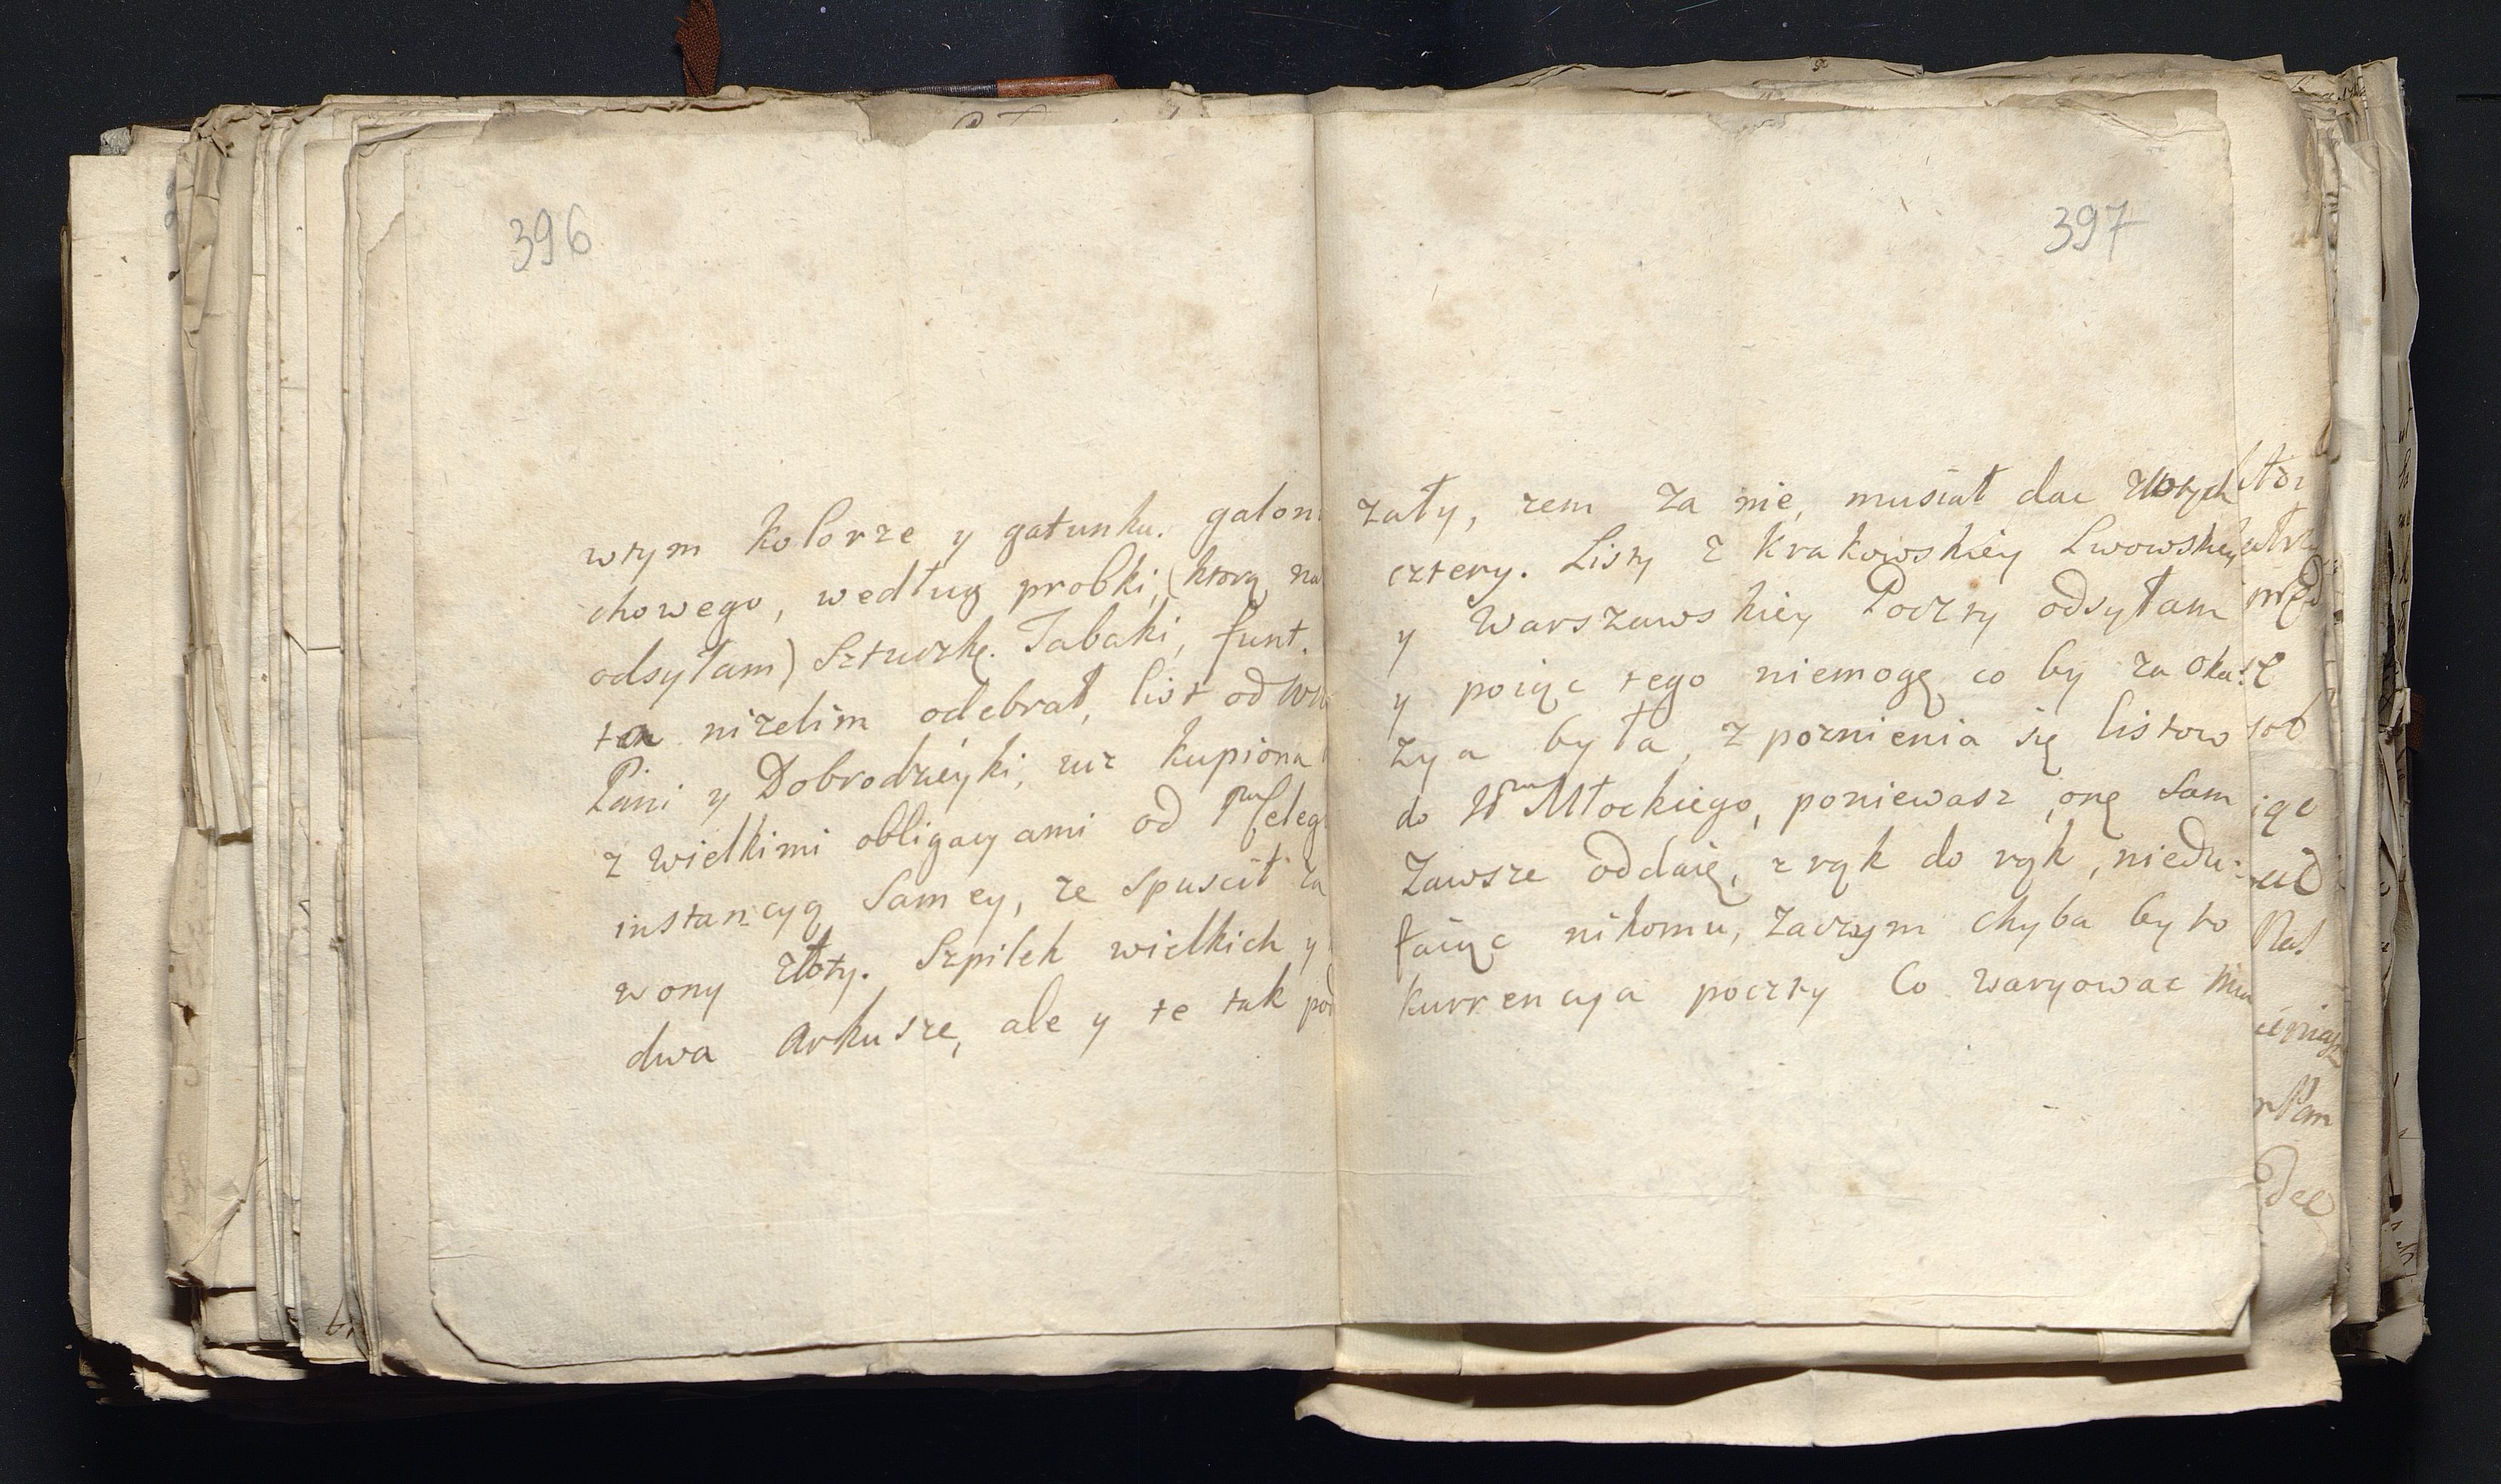 396
wtym kolorze y gatunku. galon
chowego, według probki, (ktorą na
odsyłam) Sztuczkę. Tabaki, funt.
ten nizelim odebrał, list od
Pani y Dobrodzieyki, iuz kupiona
z wielkimi obligacyami od
instancyą Samey, ze spuscił za
wony złoty. Szpilek wielkich y
dwa Arkusze, ale y te tak pod
397
zały, zem za nie, musiał dac złotych
cztery. Listy z Krakowskiey Lwowskiey
y Warszawskiey Poczty odsyłam
y poiąc tego niemogę co by za oka:
zya była, zpoznienia się listow
do Wm Młockiego, poniewasz onę sam
Zawsze oddaię, z rąk do rąk, niedu:
faiąc nikomu, zaczym chyba by to
kurrencya poczty Co waryowac